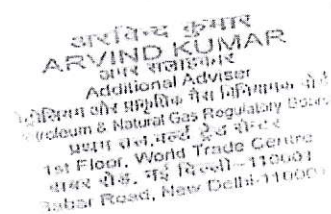 अरविन्द कुमार
ARVIND KUMAR
अपर सलाहकार
Additional Adviser
और प्राकृतिक गैस विनियामक बोर्ड
Petroleum & Natural Gas Regulatory Board
प्रथम तल, वर्ल्ड ट्रेड सेन्टर
1st Floor, World Trade Centre
बाबर रोड, नई दिल्ली-110001
Babar Road, New Delhi-110001